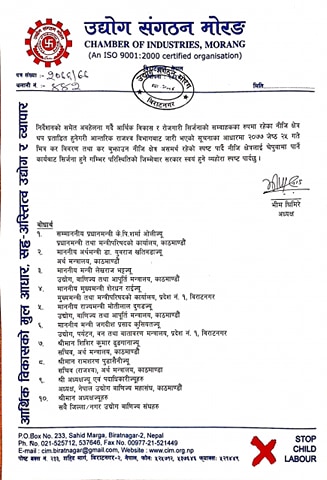 उद्योग संगठन मोरङ
CHAMBER OF INDUSTRIES, MORANG
(An ISO 9001:2000 certified organisation)
पत्र संख्या :- २०७६/७७
चलानी नं. :- ६६२
विराटनगर
निर्देशनको समेत अवहेलना गर्दै आर्थिक विकास र रोजगारी सिर्जनाको सम्वाहकका रुपमा रहेका नीजि क्षेत्र
थप प्रताडित हुनेगरी आन्तरिक राजश्व विभागबाट जारी भएको सूचनाका आधारमा २०७७ जेष्ठ २५ गते
भित्र कर विवरण तथा कर बुझाउन नीजि क्षेत्र असमर्थ रहेको स्पष्ट पार्दै नीजि क्षेत्रलाई चेपुवामा पार्ने
कार्यबाट सिर्जना हुने गम्भिर परिस्थितिको जिम्मेवार सरकार स्वयं हुने व्यहोरा स्पष्ट पार्दछु।
भीम घिमिरे
अध्यक्ष
बोधार्थ
१. सम्माननीय प्रधानमन्त्री के.पि.शर्मा ओलीज्यू
प्रधानमन्त्री तथा मन्त्रीपरिषदको कार्यालय, काठमाण्डौं
२. माननीय अर्थमन्त्री डा. युवराज खतिवडाज्यू
अर्थ मन्त्रालय, काठमाण्डौं
३. माननीय मन्त्री लेखराज भट्टज्यू
उद्योग, वाणिज्य तथा आपूर्ति मन्त्रालय, काठमाण्डौं
४. माननीय मुख्यमन्त्री शेरधन राईज्यू
मुख्यमन्त्री तथा मन्त्रीपरिषदको कार्यालय, प्रदेश नं. १, विराटनगर
५. माननीय राज्यमन्त्री मोतीलाल दुगडज्यू
उद्योग, वाणिज्य तथा आपूर्ति मन्त्रालय, काठमाण्डौं
६. माननीय मन्त्री जगदीश प्रसाद कुसियतज्यू
उद्योग, पर्यटन, वन तथा वातावरण मन्त्रालय, प्रदेश नं. १, विराटनगर
७. श्रीमान शिशिर कुमार ढुङ्गानाज्यू
सचिव, अर्थ मन्त्रालय, काठमाण्डौं
८. श्रीमान रामशरण पुडासैनीज्यू
सचिव (राजश्व), अर्थ मन्त्रालय, काठमाण्डौं
९. श्री अध्यक्षज्यू एवं पदाधिकारीज्यूहरु
अध्यक्ष, नेपाल उद्योग वाणिज्य महासंघ, काठमाण्डौं
१०. श्रीमान अध्यक्षज्यूहरु
सवै जिल्ला/नगर उद्योग वाणिज्य संघहरु
आर्थिक विकासको मुल आधार, सह-अस्तित्व उद्योग र व्यापार
P.O.Box No. 233, Sahid Marga, Biratnagar-2, Nepal
Ph. No. 021-525712, 537646, Fax No. 00977-21-521449
E-mail : cimbiratnagar@gmail.com, Website : www.cim.org.np
पोष्ट बक्स नं. २३३, शहिद मार्ग, विराटनगर-२, नेपाल, फोनः ५२५७१२, ५३७६४६, फ्याक्सः ५२१४४९
STOP
CHILD
LABOUR